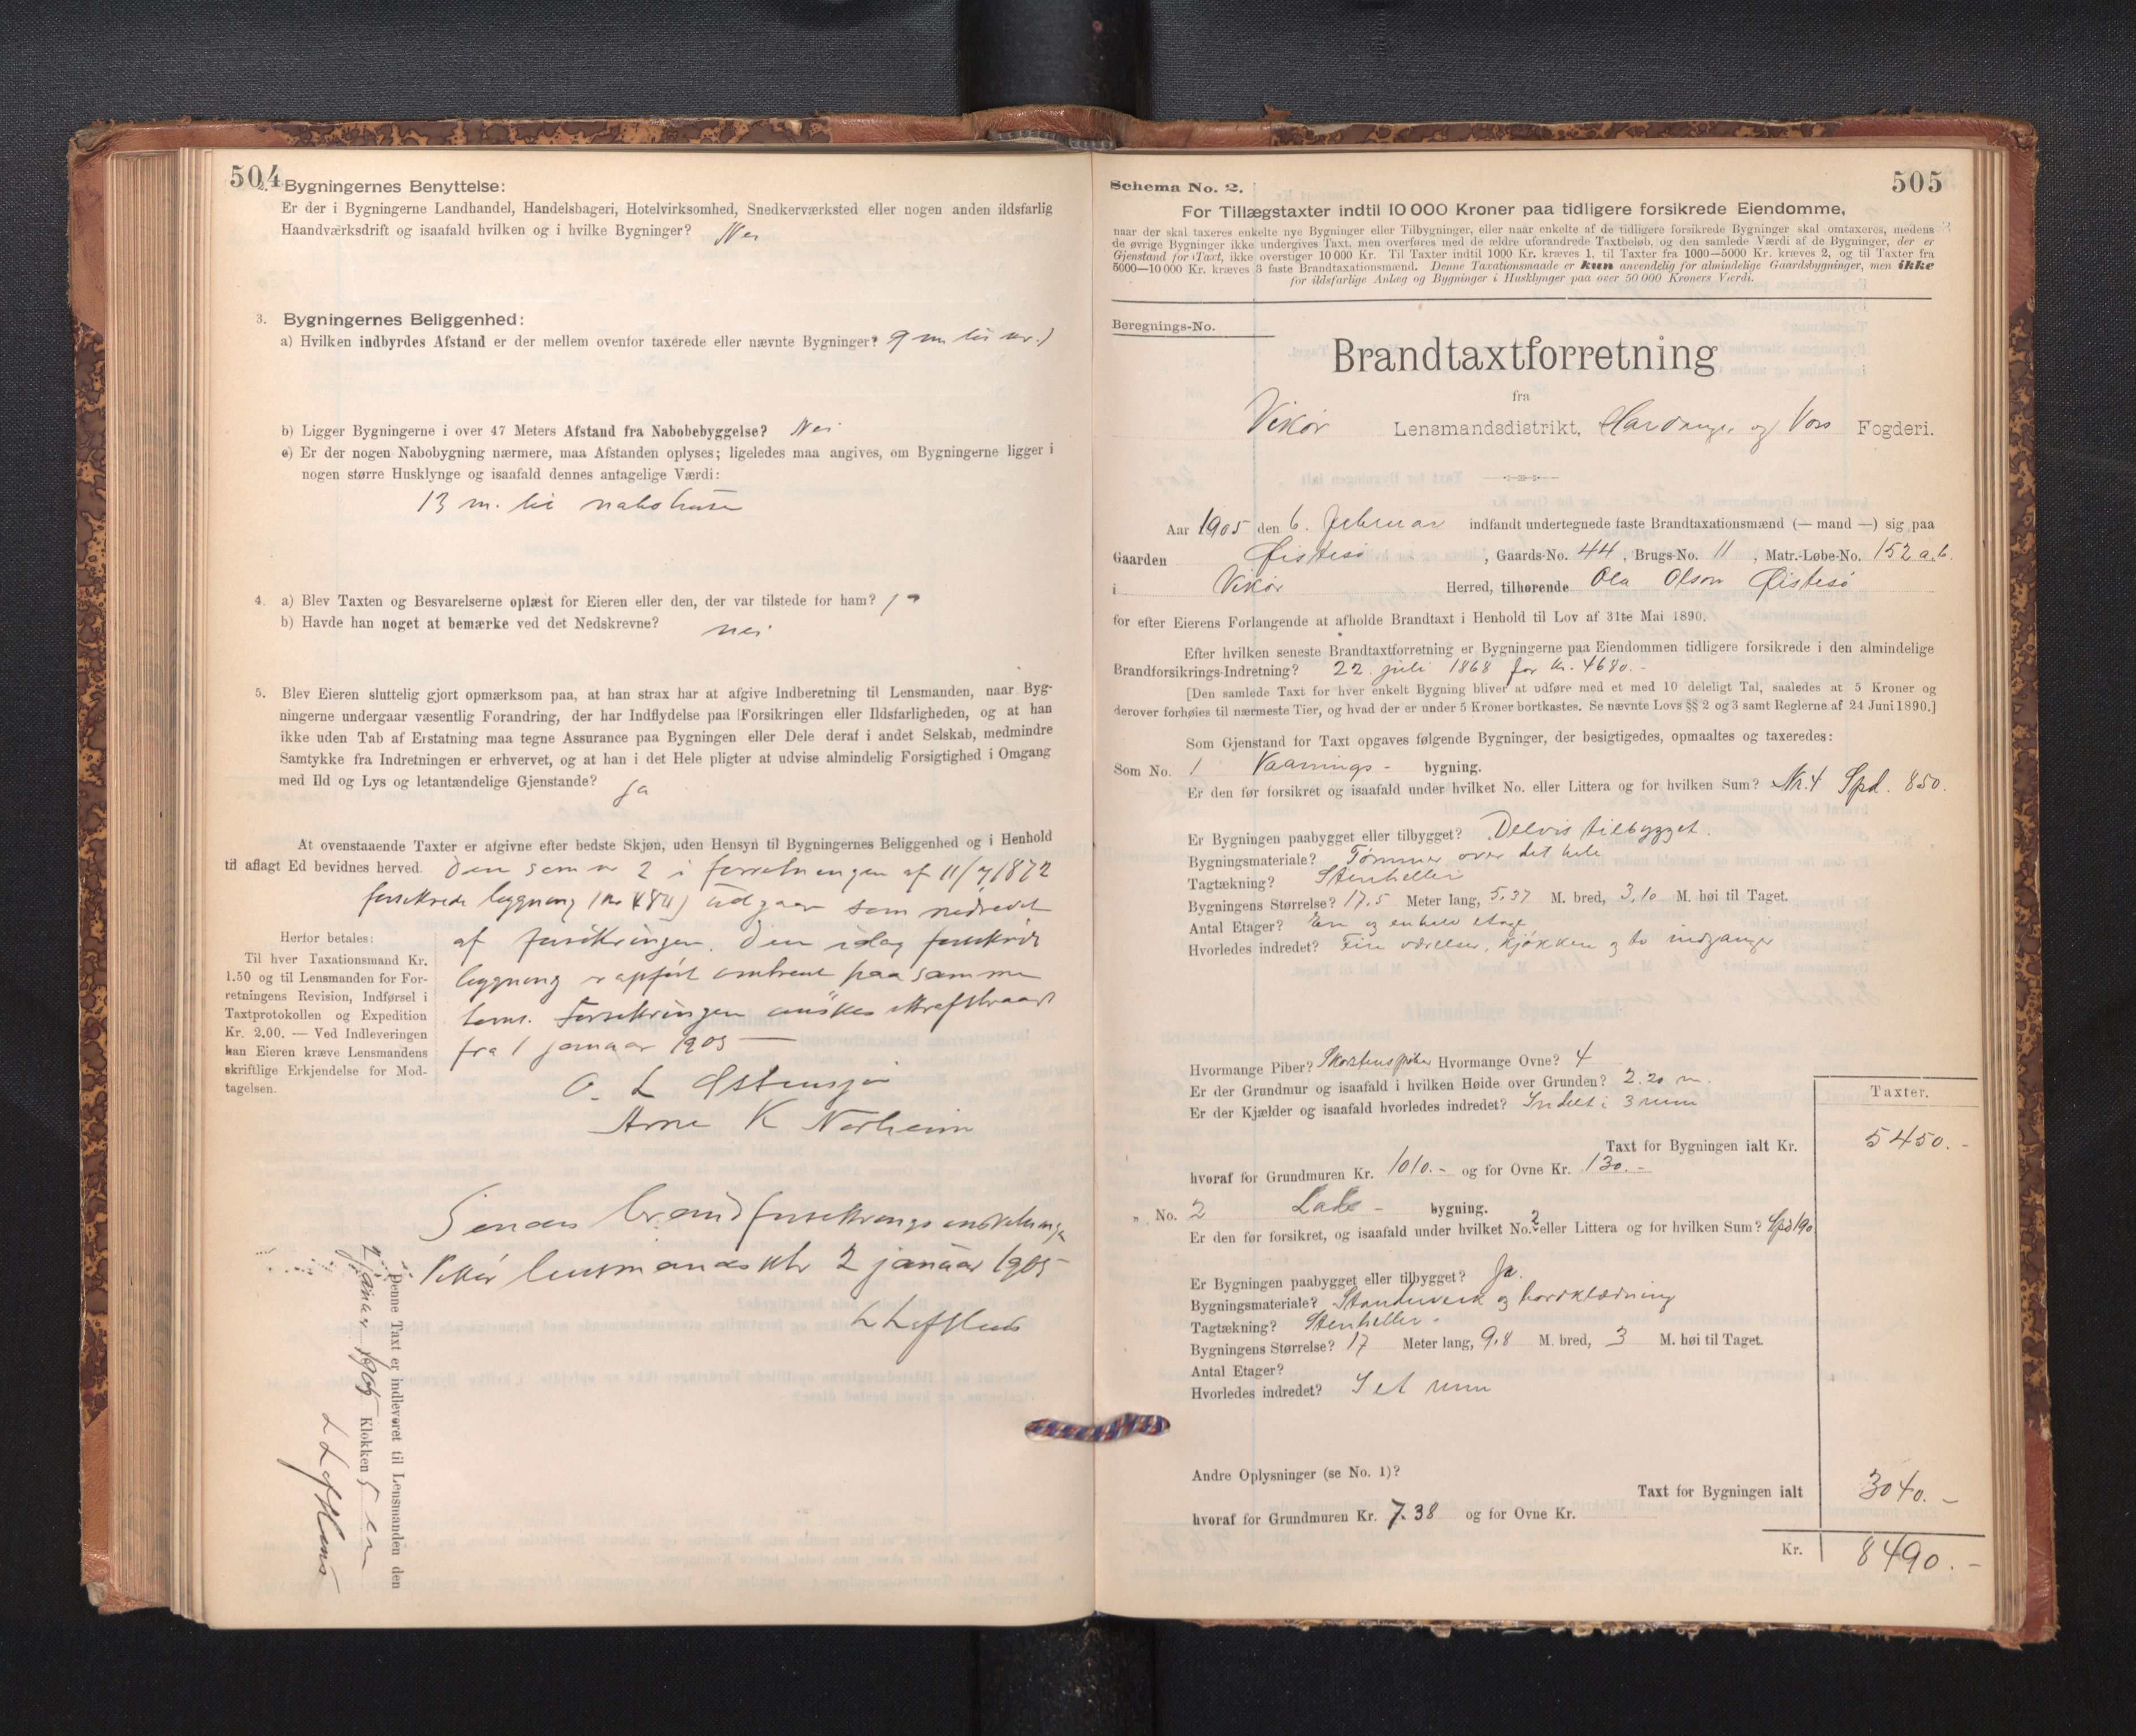 504
2. Bygningernes Benyttelse:
Er der i Bygningerne Landhandel, Handelsbageri, Hotelvirksomhed, Snedkerværksted eller nogen anden ildsfarlig
Haandværksdrift og isaafald hvilken og i hvilke Bygninger? Nei
3. Bygningernes Beliggenhed:
a) Hvilken indbyrdes Afstand er der mellem ovenfor taxerede eller nævnte Bygninger? 9 m til nr. 1
b) Ligger Bygningerne i over 47 Meters Afstand fra Nabobebyggelse? Nei
c) Er der nogen Nabobygning nærmere, maa Afstanden oplyses; ligeledes maa angives, om Bygningerne ligger i
nogen større Husklynge og isaafald dennes antagelige Værdi:
13 m. til nabohuse
4. a) Blev Taxten og Besvarelserne oplæst for Eieren eller den, der var tilstede for ham? ja
b) Havde han noget at bemærke ved det Nedskrevne? nei
5. Blev Eieren sluttelig gjort opmærksom paa, at han strax har at afgive Indberetning til Lensmanden, naar Byg-
ningerne undergaar væsentlig Forandring, der har Indflydelse paa Forsikringen eller Ildsfarligheden, og at han
ikke uden Tab af Erstatning maa tegne Assurance paa Bygningen eller Dele deraf i andet Selskab, medmindre
Samtykke fra Indretningen er erhvervet, og at han i det Hele pligter at udvise almindelig Forsigtighed i Omgang
med Ild og Lys og letantændelige Gjenstande? Ja
At ovenstaaende Taxter er afgivne efter bedste Skjøn, uden Hensyn til Bygningernes Beliggenhed og i Henhold
til aflagt Ed bevidnes herved. Den som nr 2 i forretningen af 11/7 1872
forsikrede bygning udgaar som nedrevet
af forsikringen. Den idag forsikrede
bygning er opført omtrent paa samme
tomt. Forsikringen ønskes
fra 1 januar 1905
Herfor betales:
Til hver Taxationsmand Kr.
1.50 og til Lensmanden for For-
retningens Revision, Indførsel i
Taxtprotokollen og Expedition
Kr. 2.00. — Ved Indleveringen
kan Eieren kræve Lensmandens
skriftlige Erkjendelse for Mod-
tagelsen.
O. L. Østensjø
Arne K Norheim
Sendes brandforsikringsindretningen
Vikør lensmandsktr 2 januar 1905
L Lofthus
Denne Taxt er indleveret til Lensmanden den
2 januar 1905 Klokken 5 em
L Lofthus
505
Schema No. 2.
For Tillægstaxter indtil 10 000 Kroner paa tidligere forsikrede Eiendomme,
naar der skal taxeres enkelte nye Bygninger eller Tilbygninger, eller naar enkelte af de tidligere forsikrede Bygninger skal omtaxeres, medens
de øvrige Bygninger ikke undergives Taxt, men overføres med de ældre uforandrede Taxtbeløb, og den samlede Værdi af de Bygninger, der er
Gjenstand for Taxt, ikke overstiger 10 000 Kr. Til Taxter indtil 1000 Kr. kræves 1, til Taxter fra 1000—5000 Kr. kræves 2, og til Taxter fra
5000—10 000 Kr. kræves 3 faste Brandtaxationsmænd. Denne Taxationsmaade er kun anvendelig for almindelige Gaardsbygninger, men ikke
for ildsfarlige Anlæg og Bygninger i Husklynger paa over 50 000 Kroners Værdi.
Beregnings-No.
Brandtaxtforretning
fra
Vikør Lensmandsdistrikt, Hardanger og Voss Fogderi.
Aar 1905 den 6. februar indfandt undertegnede faste Brandtaxationsmænd (— mand —) sig paa
Gaarden Øistesø, Gaards-No. 44, Brugs-No. 11, Matr.-Løbe-No. 152 a.b.
i Vikør Herred, tilhørende Ola Olson Øistesø
for efter Eierens Forlangende at afholde Brandtaxt i Henhold til Lov af 31te Mai 1890.
Efter hvilken seneste Brandtaxtforretning er Bygningerne paa Eiendommen tidligere forsikrede i den almindelige
Brandforsikrings-Indretning? 22. juli 1868 for kr. 4680.-
[Den samlede Taxt for hver enkelt Bygning bliver at udføre med et med 10 deleligt Tal, saaledes at 5 Kroner og
derover forhøies til nærmeste Tier, og hvad der er under 5 Kroner bortkastes. Se nævnte Lovs §§ 2 og 3 samt Reglerne af 24 Juni 1890.]
Som Gjenstand for Taxt opgaves følgende Bygninger, der besigtigedes, opmaaltes og taxeredes:
Som No. 1 Vaanings- bygning.
Er den før forsikret og isaafald under hvilket No. eller Littera og for hvilken Sum? Nr. 4 Spd. 850.
Er Bygningen paabygget eller tilbygget? Delvis tilbygget.
Bygningsmateriale? Tømmer over det hele
Tagtækning? Stenheller
Bygningens Størrelse? 17.5 Meter lang, 5.37 M. bred, 3.10 M. høi til Taget.
Antal Etager? En og enhalv etage
Hvorledes indredet? Fire værelser, kjøkken og to indgange
Hvormange Piber? Skorstenspiber Hvormange Ovne? 4
Er der Grundmur og isaafald i hvilken Høide over Grunden? 2.20 m.
Er der Kjælder og isaafald hvorledes indredet? Indelt i 3 rum
Taxter.
Taxt for Bygningen ialt Kr. 5450.-
hvoraf for Grundmuren Kr. 1010.- og for Ovne Kr. 130.-
„ No. 2 Lade- bygning.
Er den før forsikret, og isaafald under hvilket No. 2 eller Littera og for hvilken Sum? Spd 190
Er Bygningen paabygget eller tilbygget? Ja.
Bygningsmateriale? Standverk og bordklædning
Tagtækning? Stenheller.
Bygningens Størrelse? 17 Meter lang, 9.8 M. bred, 3 M. høi til Taget.
Antal Etager?
Hvorledes indredet? I et rum
Andre Oplysninger (se No. 1)?
Taxt for Bygningen ialt 3040.-
hvoraf for Grundmuren Kr. 7.38 og for Ovne Kr.
Kr. 8490.-